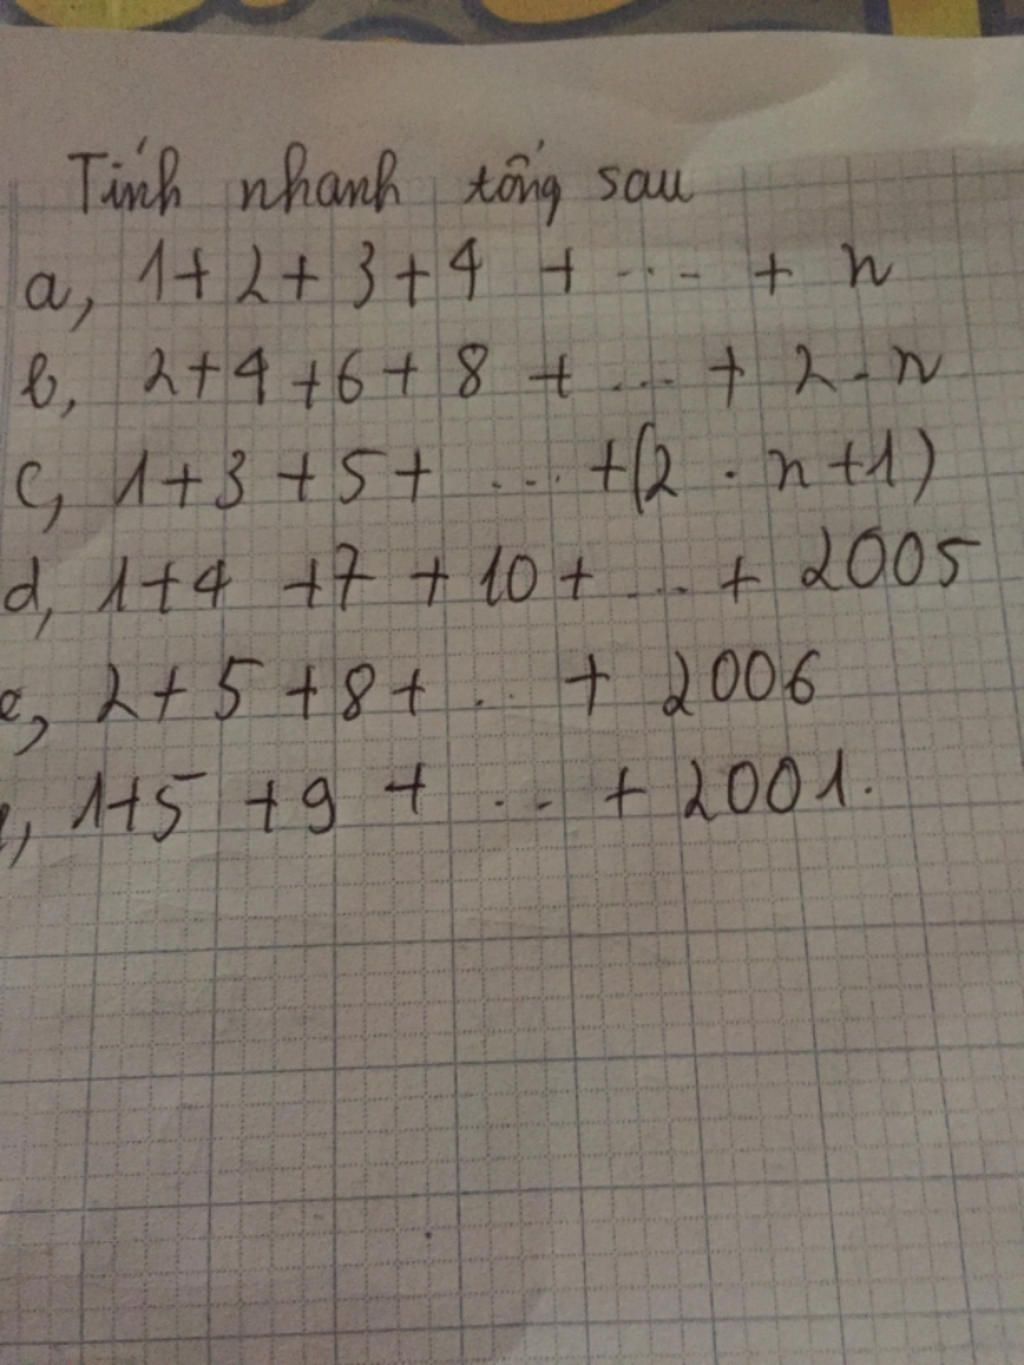 Tính nhanh tổng sau
a, 1+2+3+4 + ... + n
b, 2+4+6+8 + ... + 2.n
c, 1+3+5+ ... +(2.n+1)
d, 1+4+7+10+ ... + 2005
e, 2+5+8+ ... + 2006
, 1+5+9+ ... + 2001.